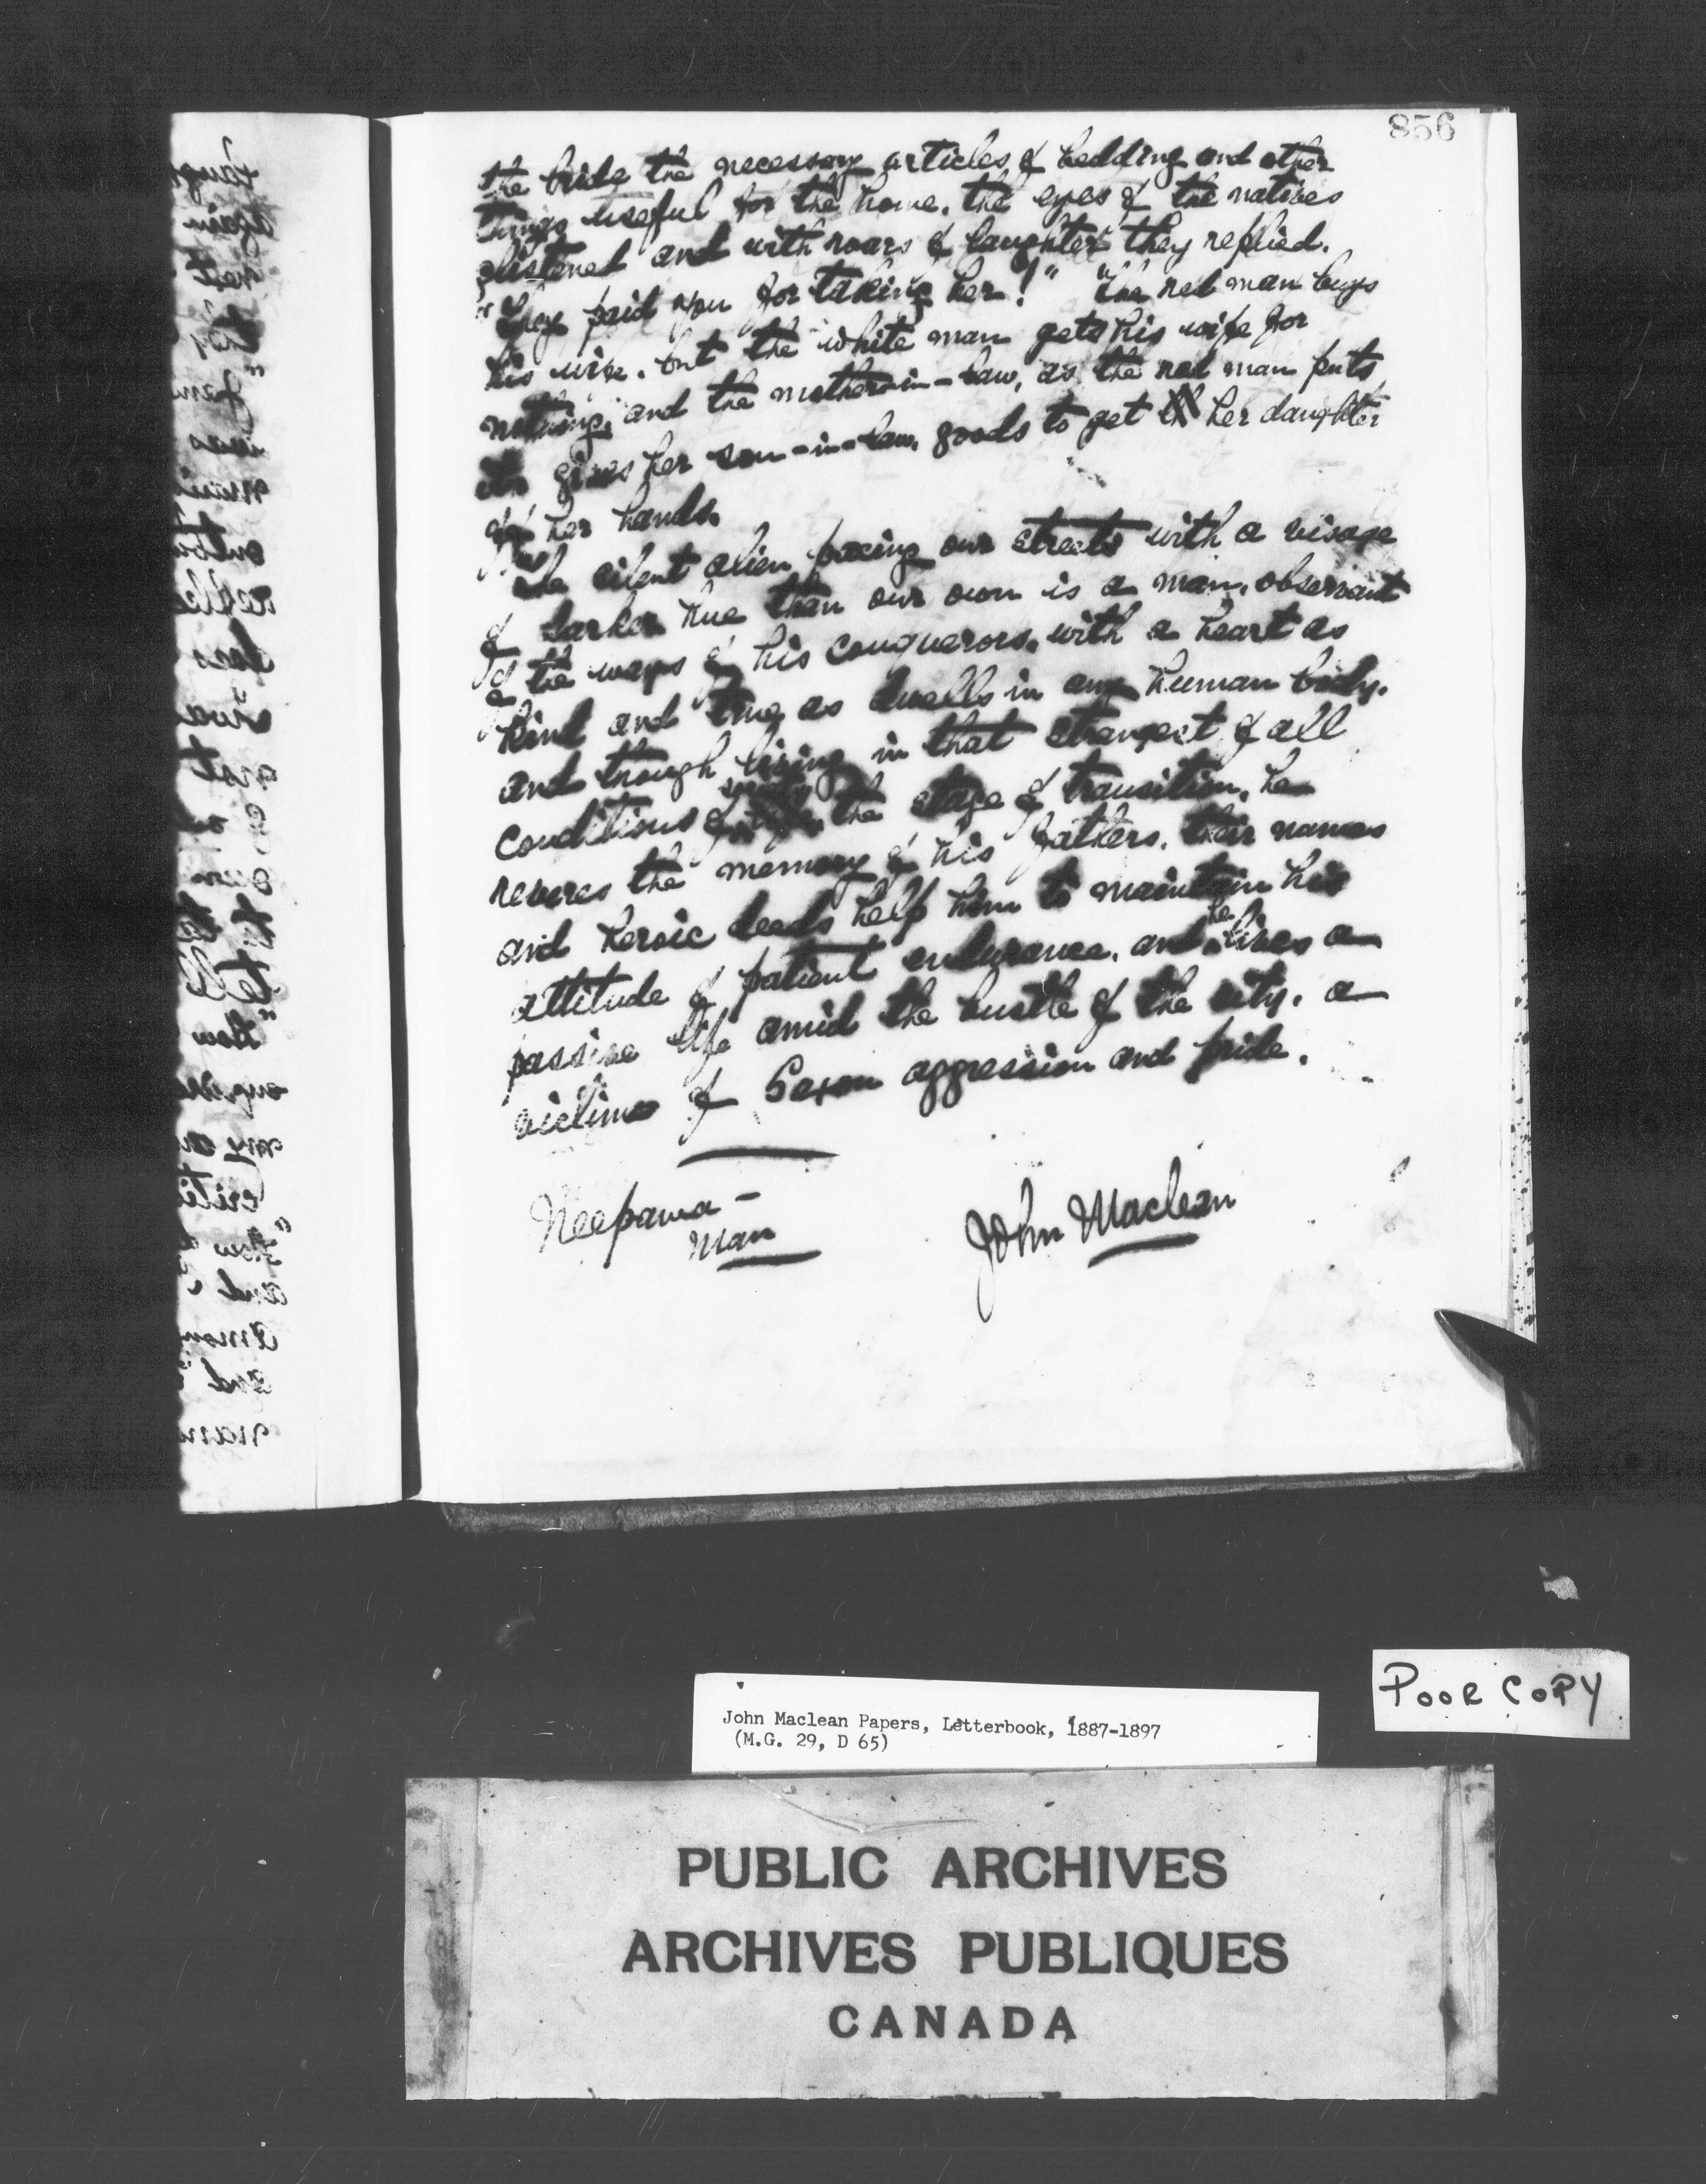 856
the bride the necessary articles of bedding and other
things useful for the home, the eyes of the natives
glistened and with roars of laughter they replied.
"They paid you for taking her!" "The red man buys
his wife, but the white man gets his wife for
nothing, and the mother-in-law, as the red man puts
it, gives her son-in-law, goods to get her daughter
off her hands.
The silent alien pacing our streets with a visage
of darker hue than our own is a man, observant
of the ways of his conquerors, with a heart as
kind and true as dwells in any human body,
and though living in that strangest of all
conditions of the stage of transition, he
reveres the memory of his fathers, their names
and heroic deeds help him to maintain his
attitude of patient endurance, and he lives a
passive life amid the bustle of the city, a
victim of Saxon aggression and pride.
Neepawa-
Man
John Maclean
POOR COPY
John Maclean Papers, Letterbook, 1887-1897
(M.G. 29, D 65)
PUBLIC ARCHIVES
ARCHIVES PUBLIQUES
CANADA